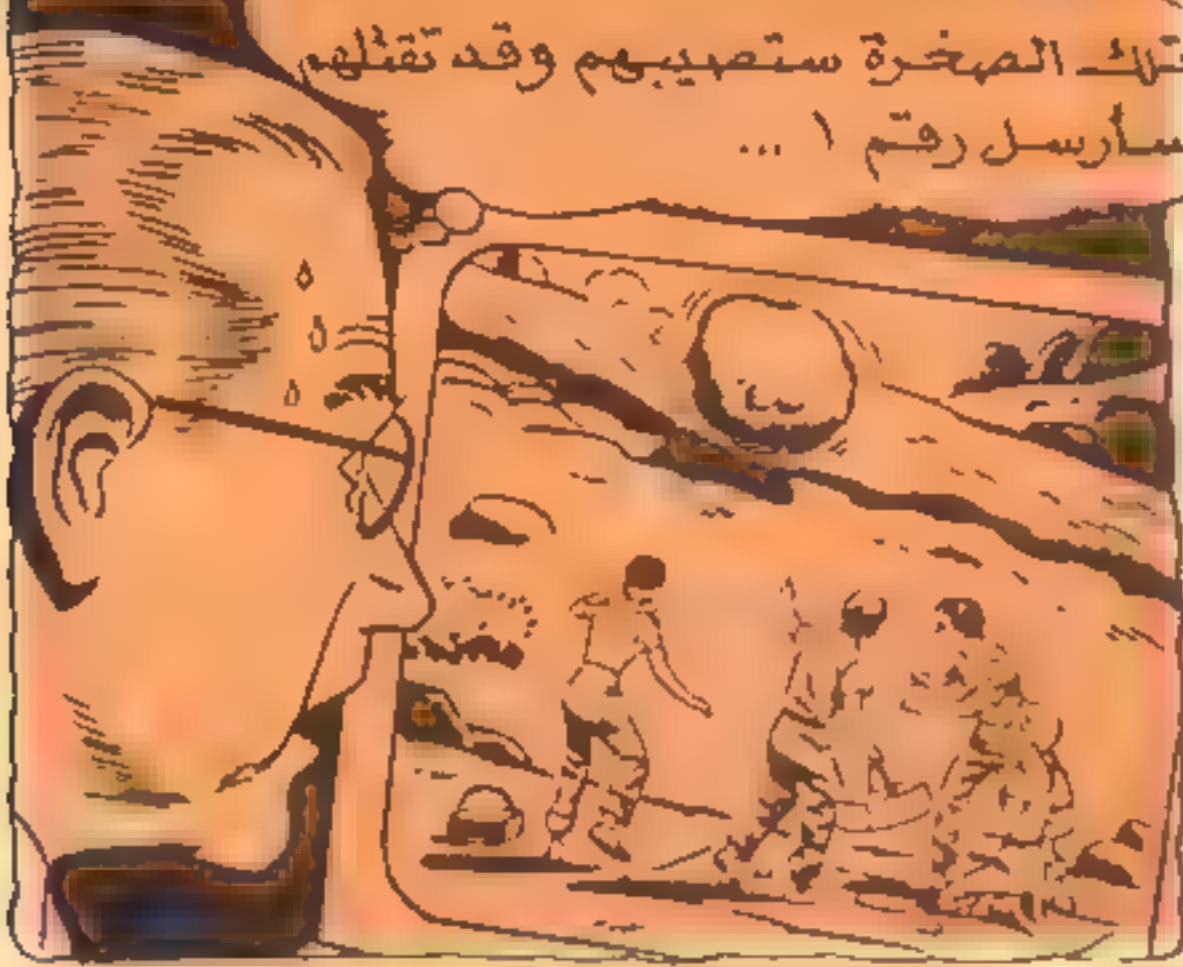 تلك الصخرة ستصيبهم وقد تقتلهم
سأرسل رقم ١ ...